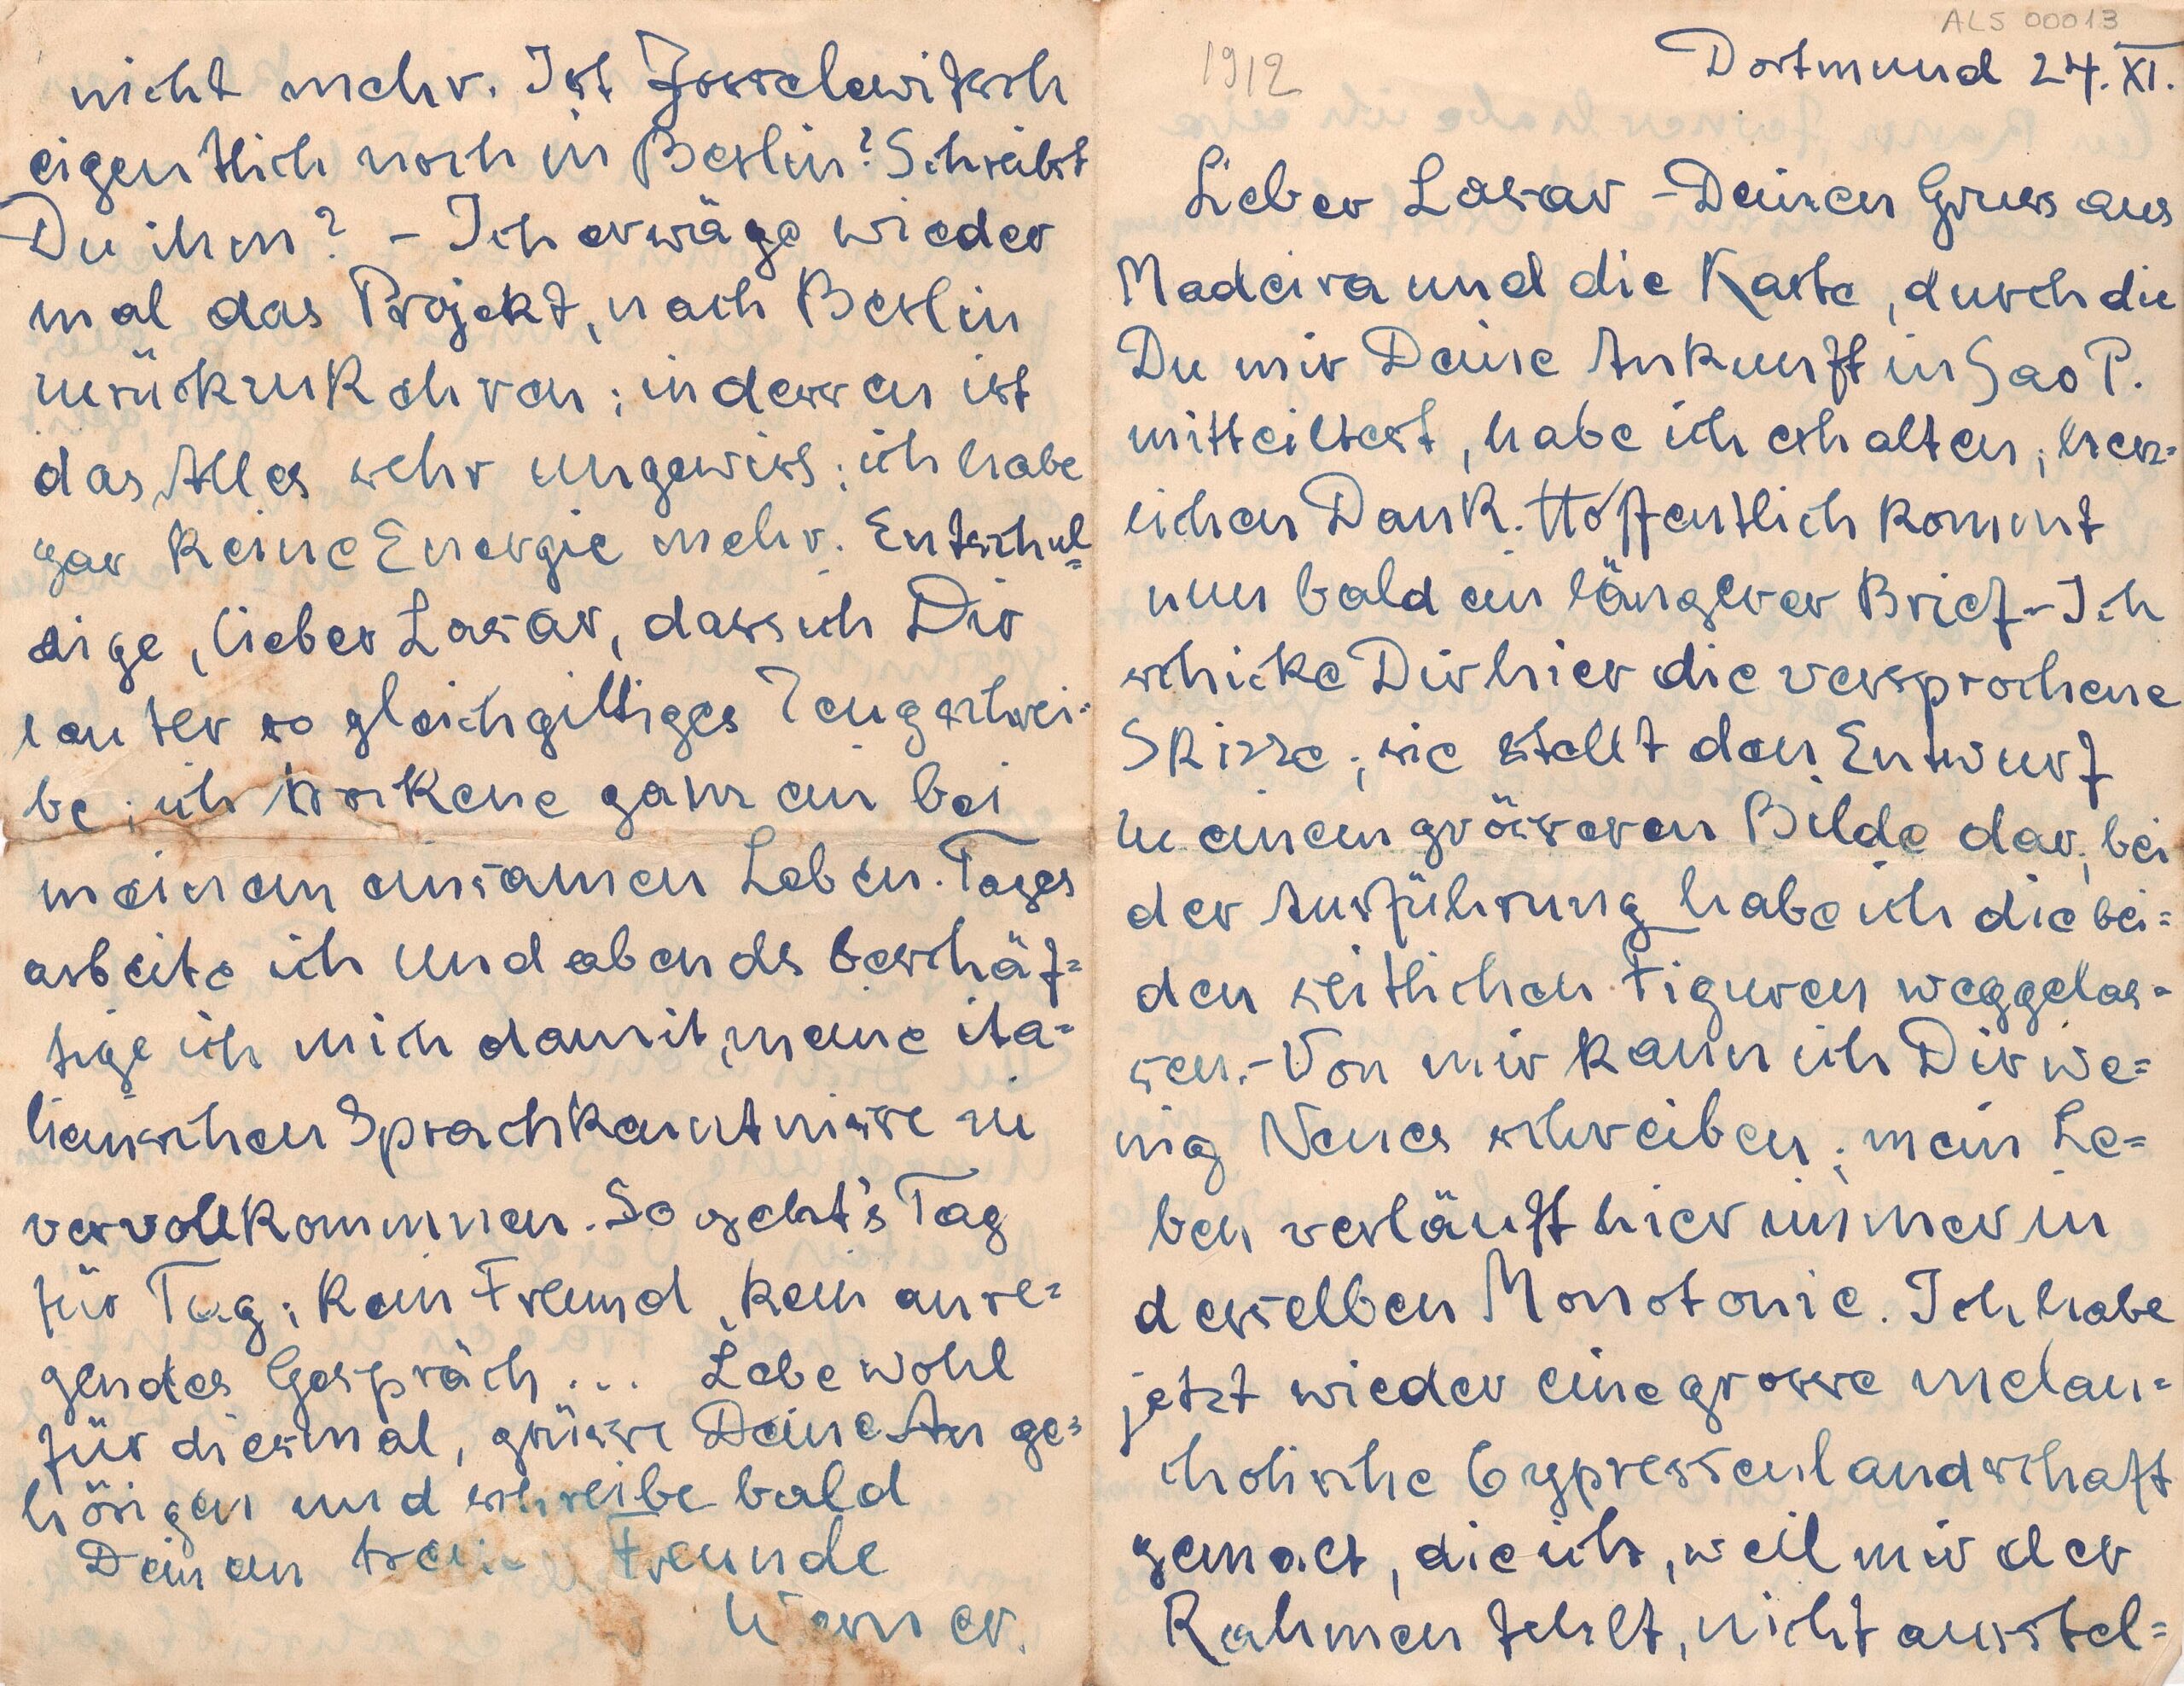 ALS 00013
1912
Dortmund 24. XI.
Lieber Lasar - Deinen Gruss aus
Madeira und die Karte, durch die
Du mir Deine Ankunft in Sao P.
mitteiltest, habe ich erhalten; herz-
lichen Dank. Hoffentlich kommt
nun bald ein längerer Brief - Ich
schicke Dir hier die versprochene
Skizze; sie stellt den Entwurf
zu einem grösseren Bilde dar; bei
der Ausführung habe ich die bei=
den seitlichen Figuren weggelas-
sen. - Von mir kann ich Dir we=
nig Neues schreiben; mein Le=
ben verläuft hier immer in
derselben Monotonie. Ich habe
jetzt wieder eine grosse melan=
cholische Cypressenlandschaft
gemalt, die ich, weil mir der
Rahmen fehlt, nicht ausstel=
nicht mehr. Ist Josselewitsch
eigentlich noch in Berlin? Schreibst
Du ihm? - Ich erwäge wieder
mal das Projekt, nach Berlin
zurückzukehren; indessen ist
das Alles sehr ungewiss; ich habe
gar keine Energie mehr. Entschul=
dige, lieber Lasar, dass ich Dir
lauter so gleichgiltiges Zeug schrei-
be; ich trockene ganz ein bei
meinem einsamen Leben. Tages
arbeite ich und abends beschäf=
tige ich mich damit, meine ita=
lienischen Sprachkenntnisse zu
vervollkommnen. So geht's Tag
für Tag; kein Freund, kein anre=
gendes Gespräch ... Lebe wohl
für diesmal, grüsse Deine Ange=
hörigen und schreibe bald
Deinen treuen Freunde
Werner.